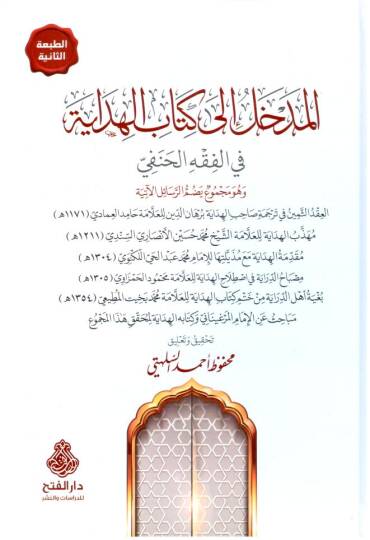 الطبعة
الثانية
المدخل إلى كتاب الهداية
في الفقه الحنفي
وهو مجموع يضم الرسائل الآتية
العقد الثمين في ترجمة صاحب الهداية برهان الدين للعلامة حامد العمادي (١١٧١هـ)
مهذب الهداية للعلامة الشيخ محمد حسين الأنصاري السندي (١٢١١هـ)
مقدمة الهداية مع مذيلتها للإمام محمد عبد الحي اللكنوي (١٣٠٤هـ)
مصباح الدراية في اصطلاح الهداية للعلامة محمود الحمزاوي (١٣٠٥هـ)
بغية أهل الدراية من ختم كتاب الهداية للعلامة محمد بخيت المطيعي (١٣٥٤هـ)
مباحث عن الإمام المرغيناني وكتابه الهداية لمحقق هذا المجموع
تحقيق وتعليق
محفوظ أحمد السلهتي
دار الفتح
للدراسات والنشر